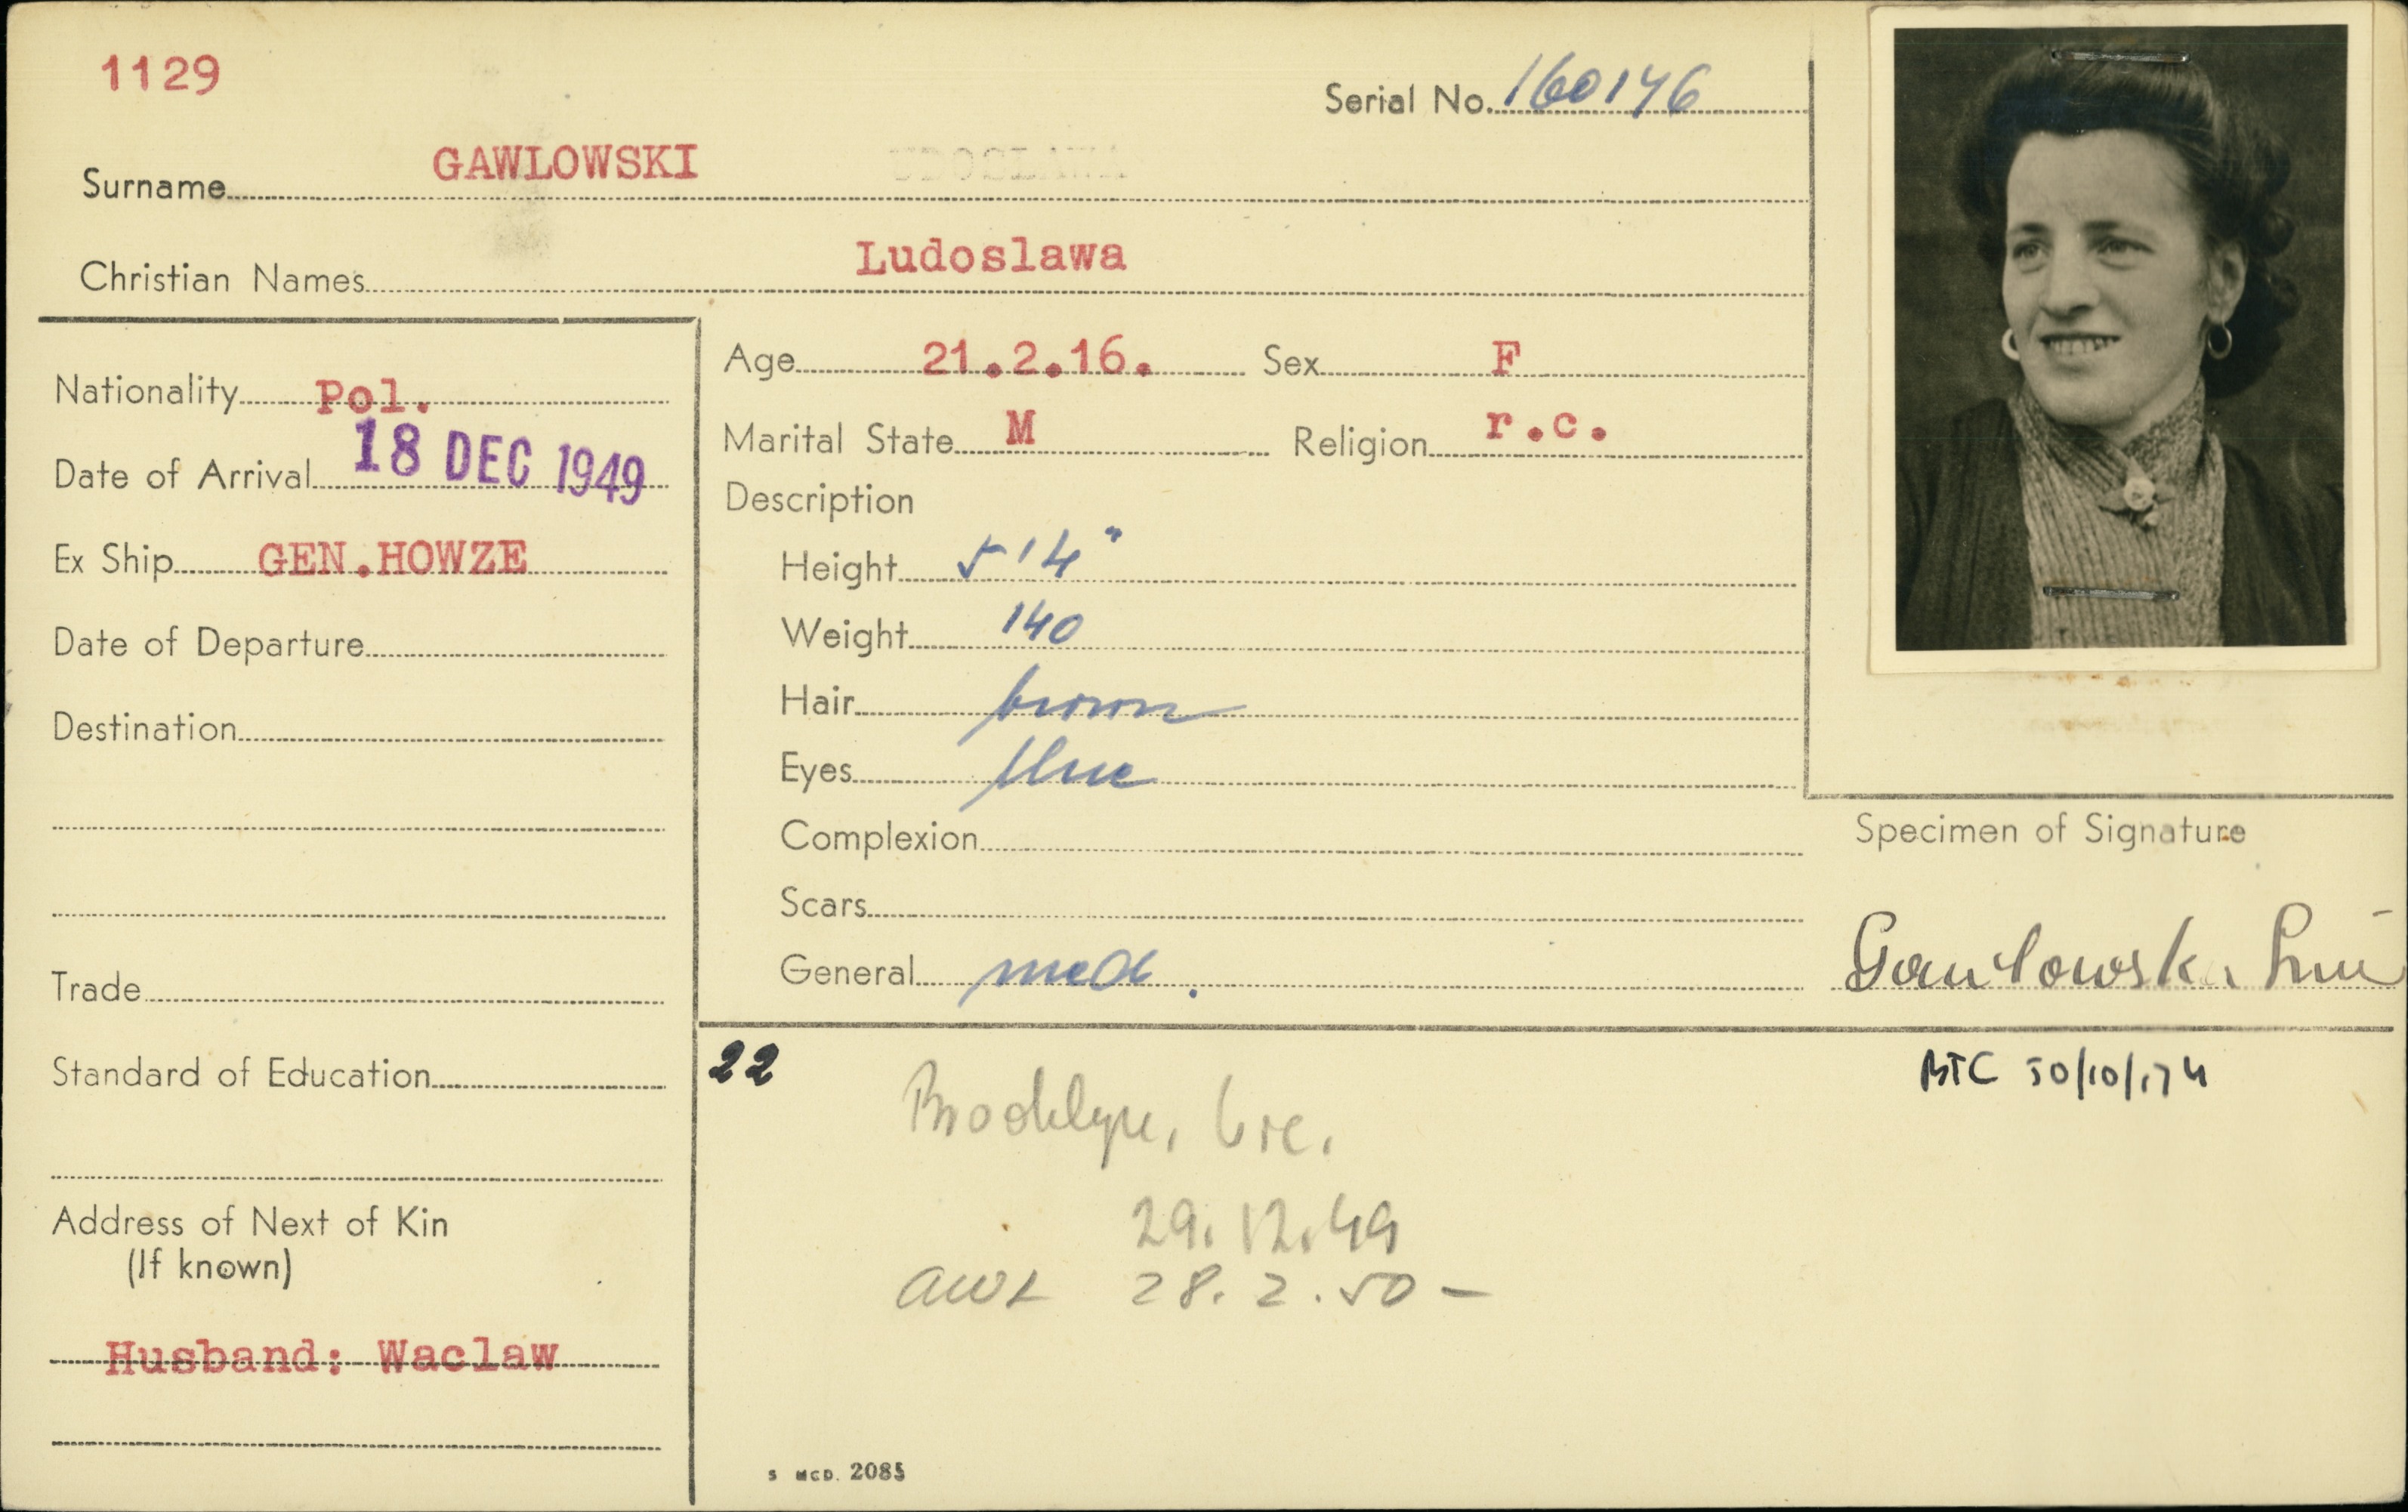 1129
Serial No. 160146
Surname GAWLOWSKI
Christian Names Ludoslawa
Nationality Pol.
Date of Arrival 18 DEC 1949
Ex Ship GEN.HOWZE
Date of Departure
Destination
Trade
Standard of Education
Address of Next of Kin
(If known)
Husband: Waclaw
Age 21.2.16. Sex F
Marital State M Religion r.c.
Description
Height 5'4"
Weight 140
Hair brown
Eyes blue
Complexion
Scars
General med.
Specimen of Signature
Gawlowska
22
Brooklyn,
29.12.49
28.2.50-
2085